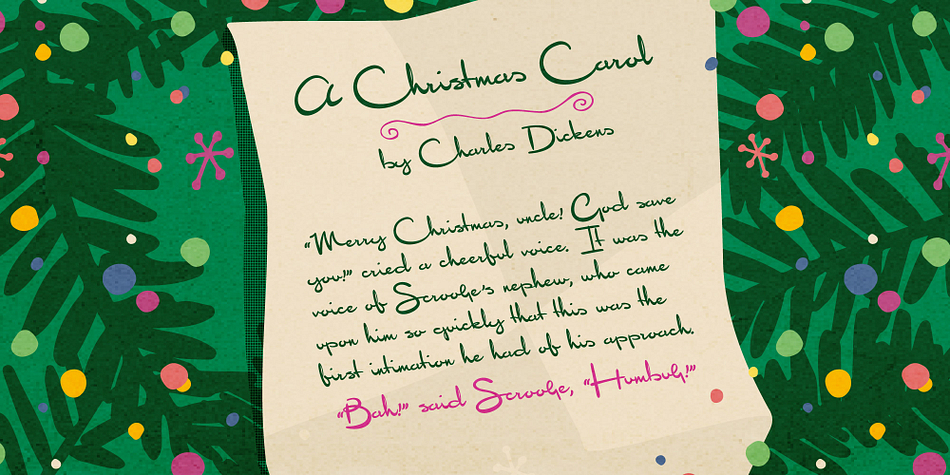 A Christmas Carol
by Charles Dickens
“Merry Christmas, uncle! God save
you!” cried a cheerful voice. It was the
voice of Scrooge’s nephew, who came
upon him so quickly that this was the
first intimation he had of his approach.
“Bah!” said Scrooge, “Humbug!”